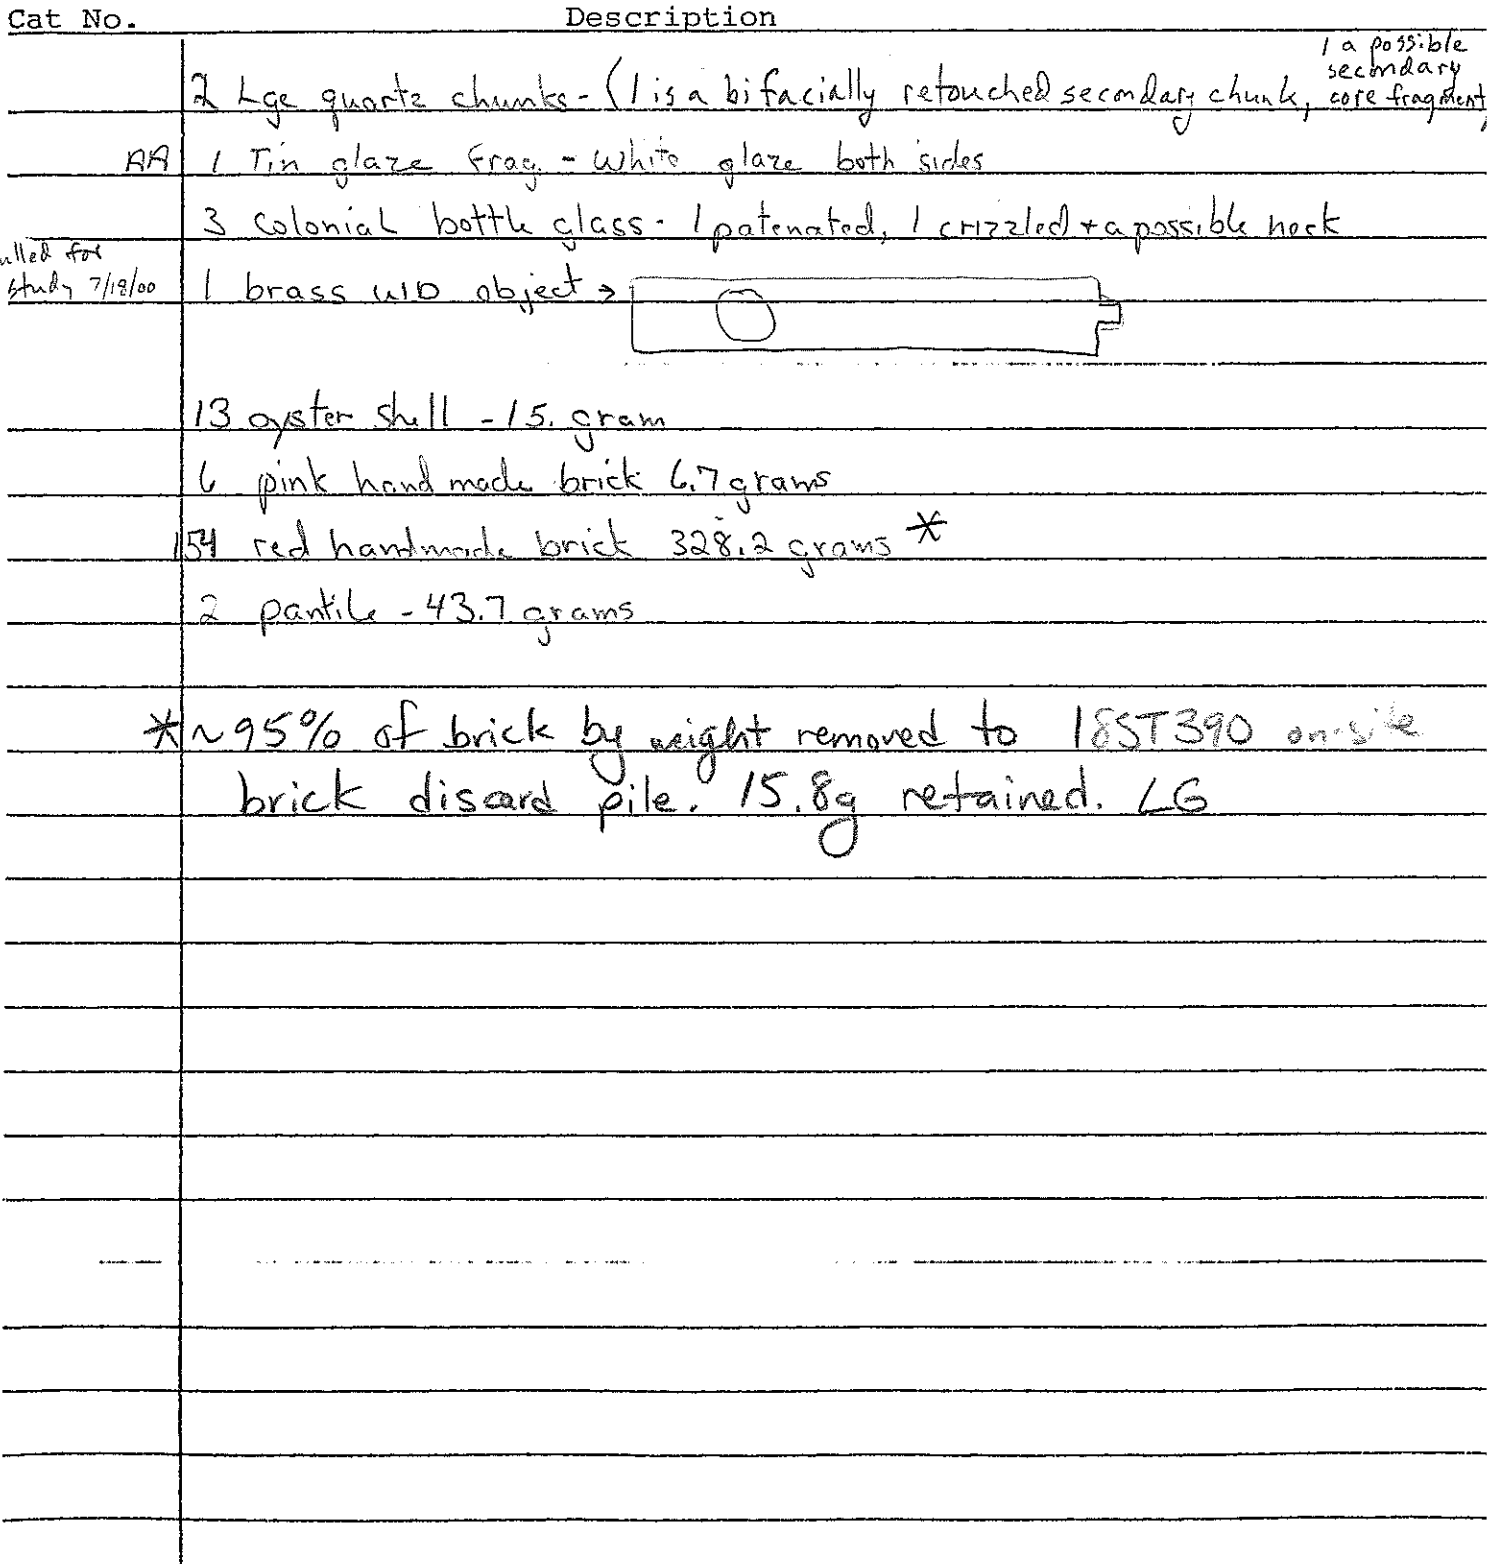 Cat No. Description
1 a possible
secondary
2 Lge quartz chunks - (1 is a bifacially retouched secondary chunk, core fragment)
AA 1 Tin glaze Frag. - White glaze both sides
3 colonial bottle glass - 1 patenated, 1 crizzled + a possible neck
ulled for
study 7/18/00 1 brass UID object →
13 oyster shell - 15. gram
6 pink hand made brick 6.7 grams
154 red handmade brick 328.2 grams *
2 pantile - 43.7 grams
* ~95% of brick by weight removed to 18ST390 on-site
brick discard pile. 15.8g retained. LG